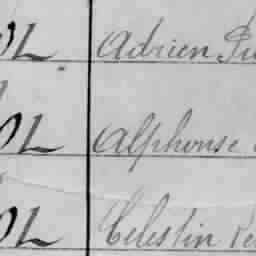 OL Adrien
OL Alphonse
OL Celestin